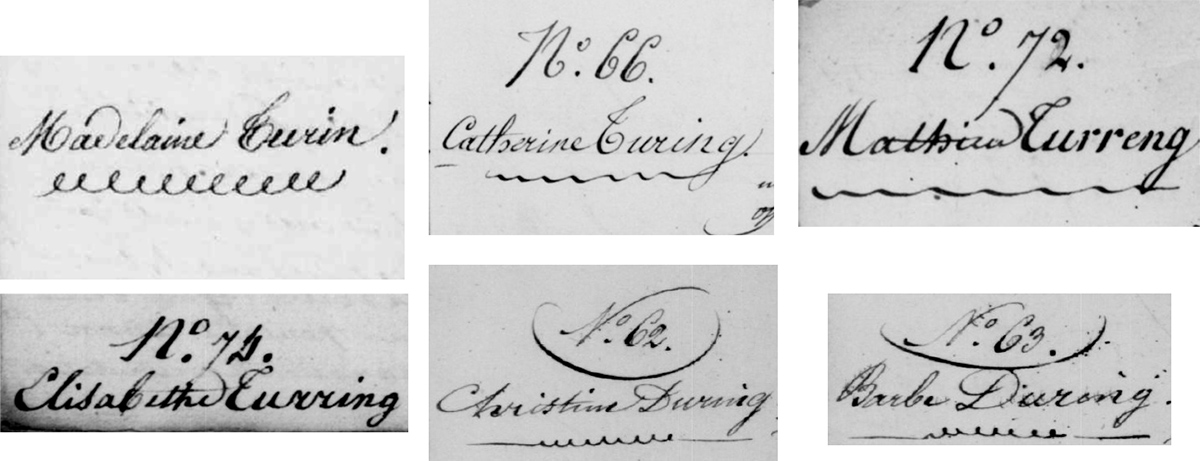 Madelaine Turin.
No. 66.
Catherine Turing.
No. 72.
Mathieu Turreng
No. 74.
Elisabethe Turring
No. 62.
Christine During
No. 63.
Barbe During.